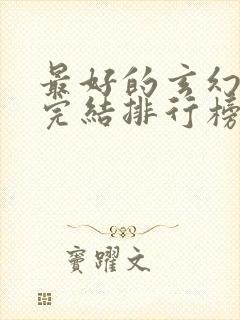 最好的玄幻
完结排行榜
窦躍文